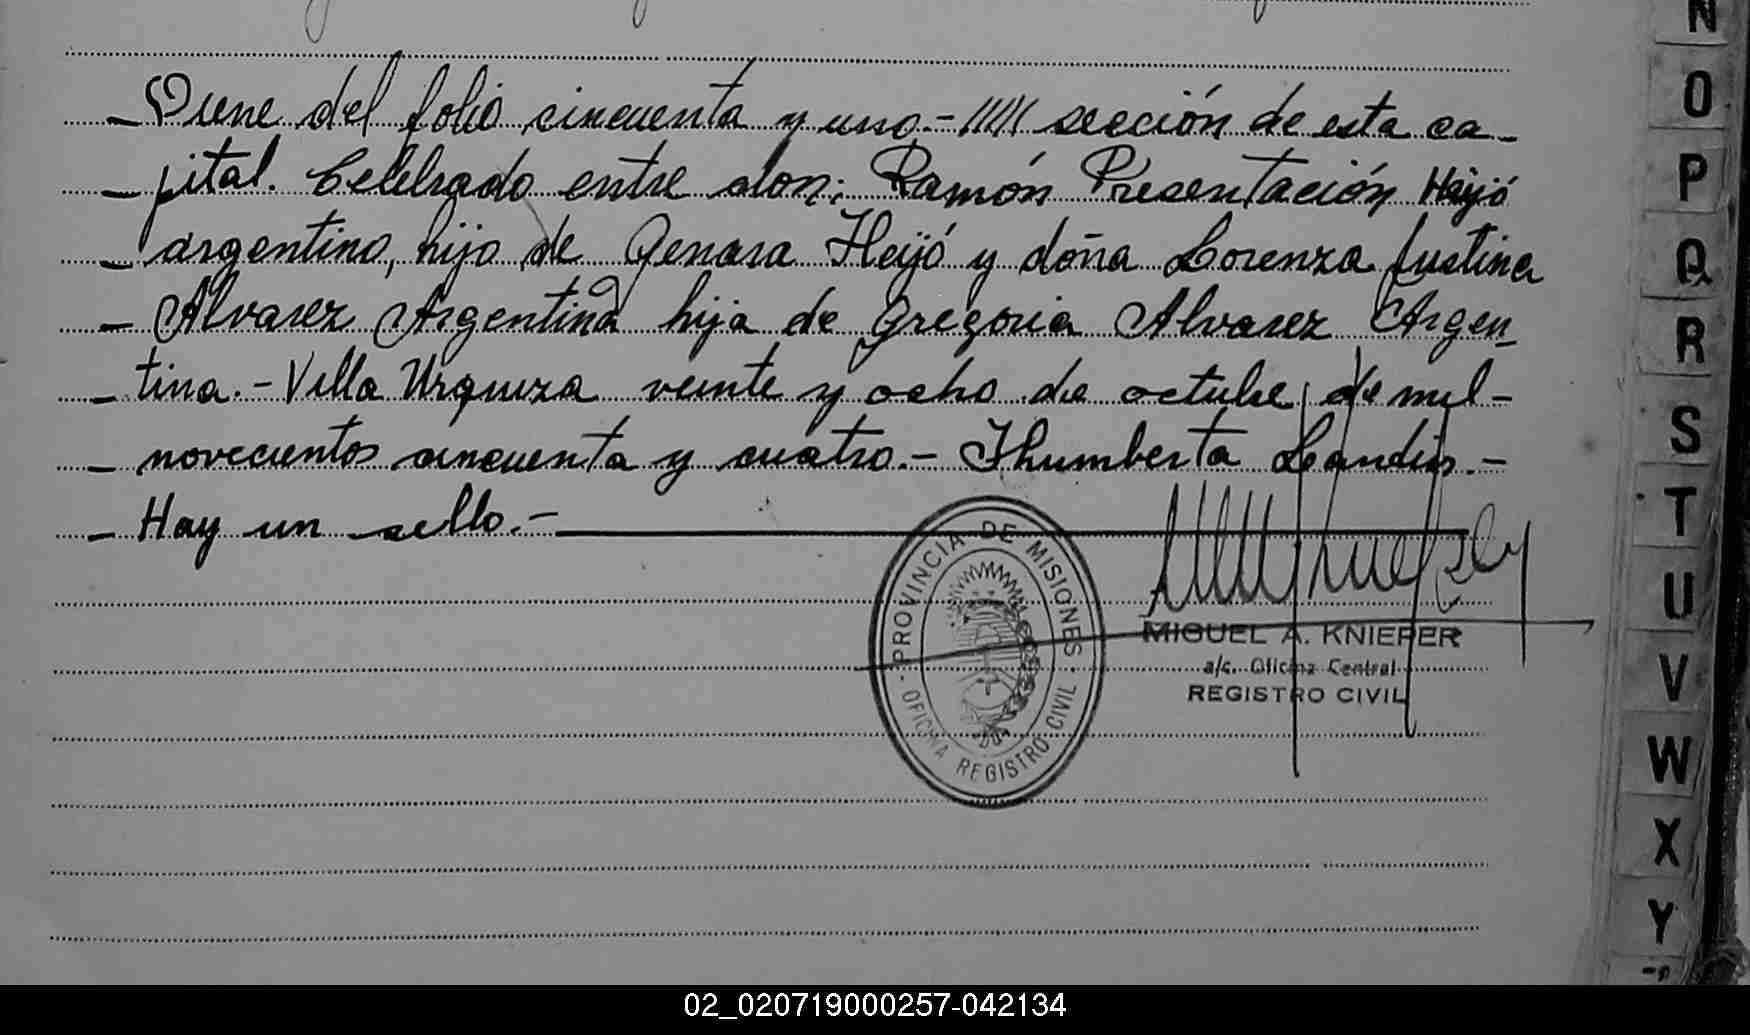 - Viene del folio cincuenta y uno.- ///// sección de esta ca_
- pital. Celebrado entre don: Ramón Presentación Heijó
- argentino, hijo de Genara Heijó y doña Lorenza Justina
- Alvarez Argentina hija de Gregoria Alvarez Argen_
- tina.- Villa Urquiza veinte y ocho de octubre de mil -
- novecientos cincuenta y cuatro.- Thumberta Landin.-
- Hay un sello.-
PROVINCIA DE MISIONES
OFICINA REGISTRO CIVIL
MIGUEL A. KNIEPER
a/c. Oficina Central
REGISTRO CIVIL
N
O
P
Q
R
S
T
U
V
W
X
Y
02_020719000257-042134